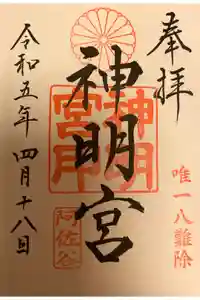 奉拝
唯一八難除
神明宮
神明
宮印
阿佐谷
令和五年四月十八日